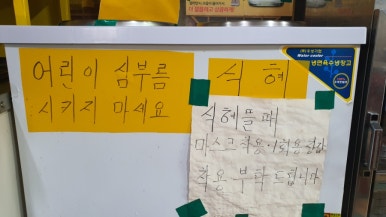 어린이 심부름
시키지 마세요
식혜
식혜뜰때
마스크착용
착용 부탁드립니다
Water cooler
냉면육수냉장고